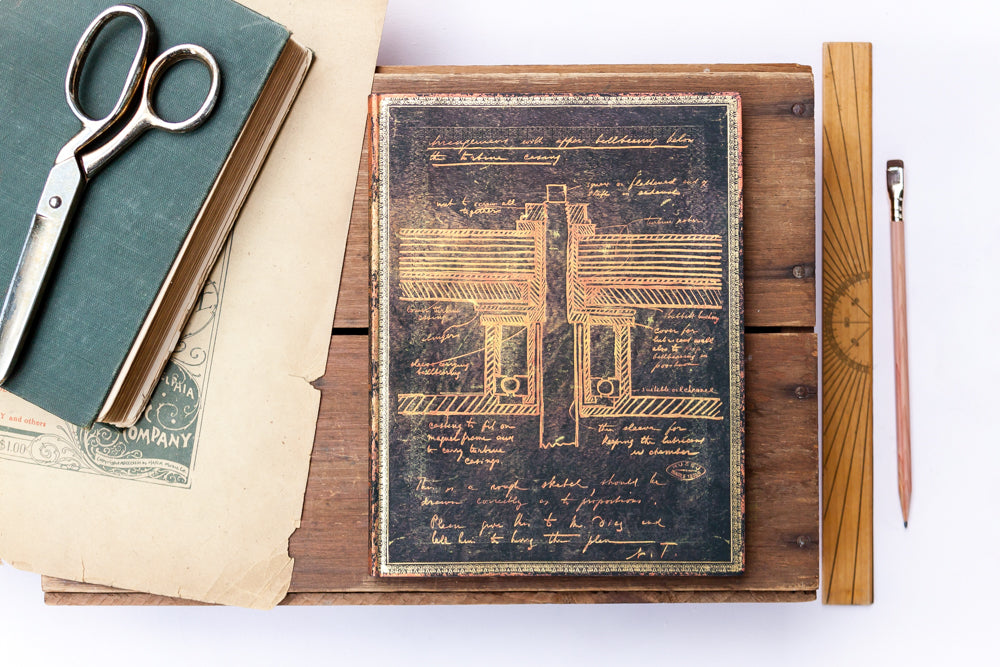 Arrangement with upper ballbearing below
the turbine casing
nut to screw all
together
turbine rotor
babbitt bushing
Lower turbine
casing
cover for
lubricant well
also to
ballbearing in
position
ballbearing
suitable oil channel
casting to fit on
magnet frame and
to carry turbine
casings.
thin sleeve for
keeping the lubricant
in chamber
This is a rough sketch, should be
drawn correctly as to proportions.
Please give this to Mr Diaz and
tell him to bring the plan
N. T
Y and others
$1.00
COMPANY